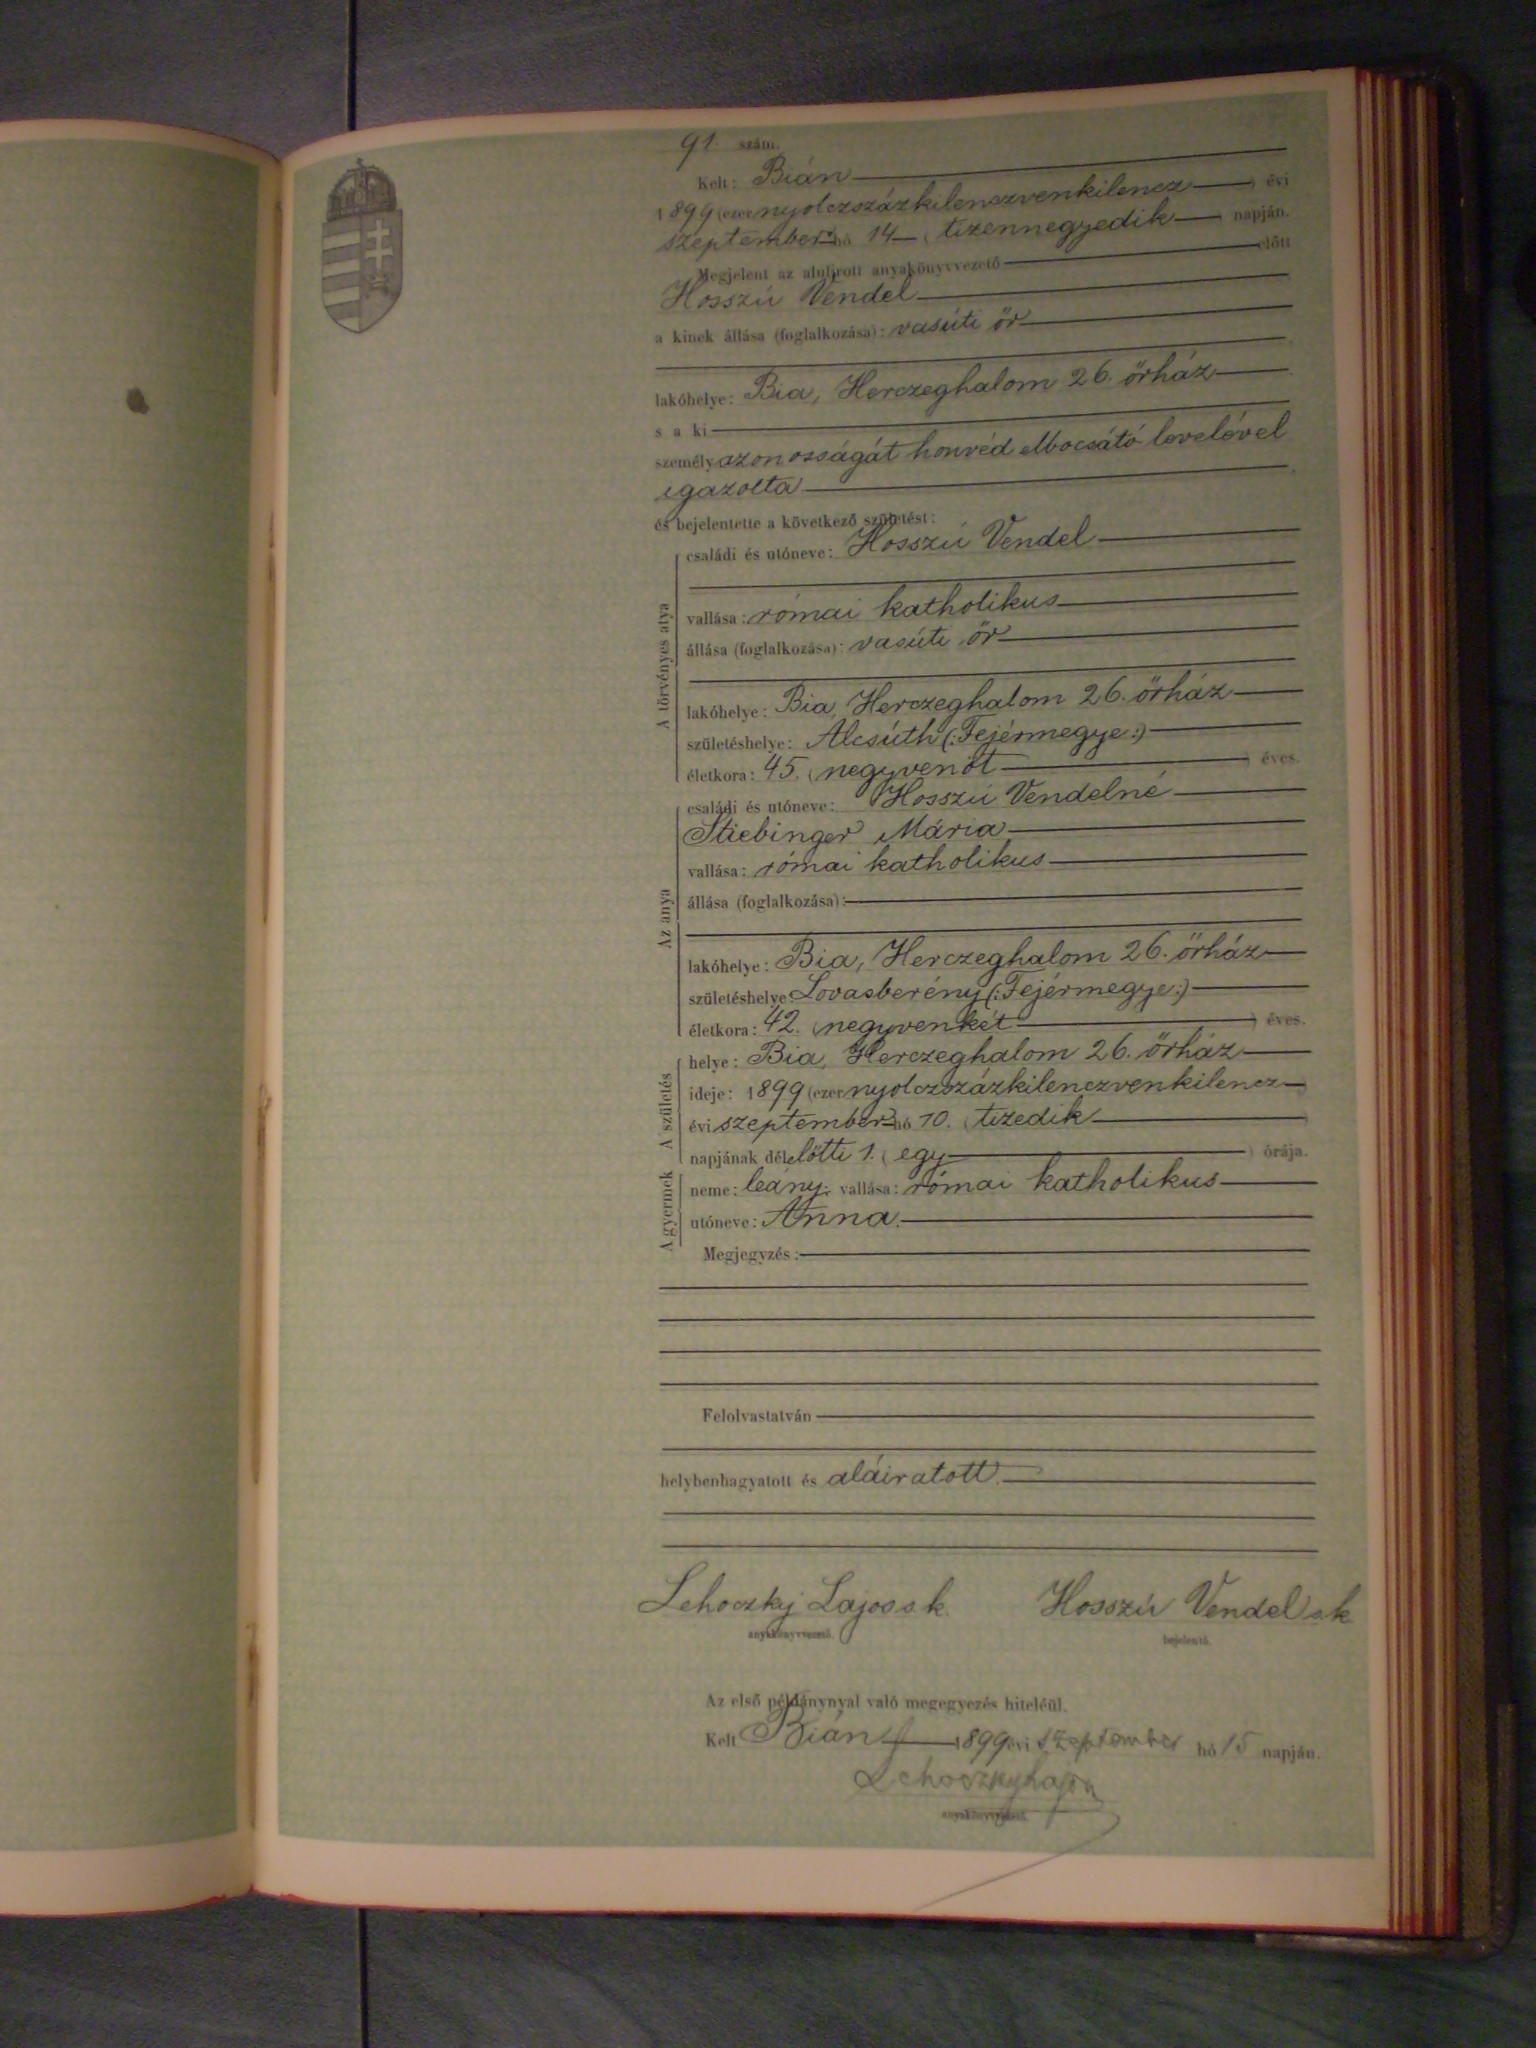 91. szám.
Kelt: Bián
1899 (ezer nyolczszázkilenczvenkilencz) évi
szeptember hó 14 (tizennegyedik) napján.
Megjelent az alulirott anyakönyvvezető előtt
Hosszú Vendel
a kinek állása (foglalkozása): vasúti őr
lakóhelye: Bia, Herczeghalom 26. őrház
s a ki
személyazonosságát honvéd elbocsátó levelével
igazolta
és bejelentette a következő születést:
A törvényes atya
családi és utóneve: Hosszú Vendel
vallása: római katholikus
állása (foglalkozása): vasúti őr
lakóhelye: Bia, Herczeghalom 26. őrház
születéshelye: Alcsúth (:Fejérmegye:)
életkora: 45. (negyvenöt) éves.
Az anya
családi és utóneve: Hosszú Vendelné
Stiebinger Mária
vallása: római katholikus
állása (foglalkozása):
lakóhelye: Bia, Herczeghalom 26. őrház
születéshelye: Lovasberény (:Fejérmegye:)
életkora: 42. (negyvenkét) éves.
A születés
helye: Bia, Herczeghalom 26. őrház
ideje: 1899 (ezer nyolczszázkilenczvenkilencz)
évi szeptember hó 10. (tizedik)
napjának délelőtti 1. (egy) órája.
A gyermek
neme: leány; vallása: római katholikus
utóneve: Anna.
Megjegyzés:
Felolvastatván
helybenhagyatott és aláiratott.
Lehoczky Lajos s.k. Hosszú Vendel s.k.
anyakönyvvezető. bejelentő.
Az első példánynyal való megegyezés hiteléül.
Kelt Bián 1899 évi szeptember hó 15 napján.
Lehoczky Lajos
anyakönyvvezető.